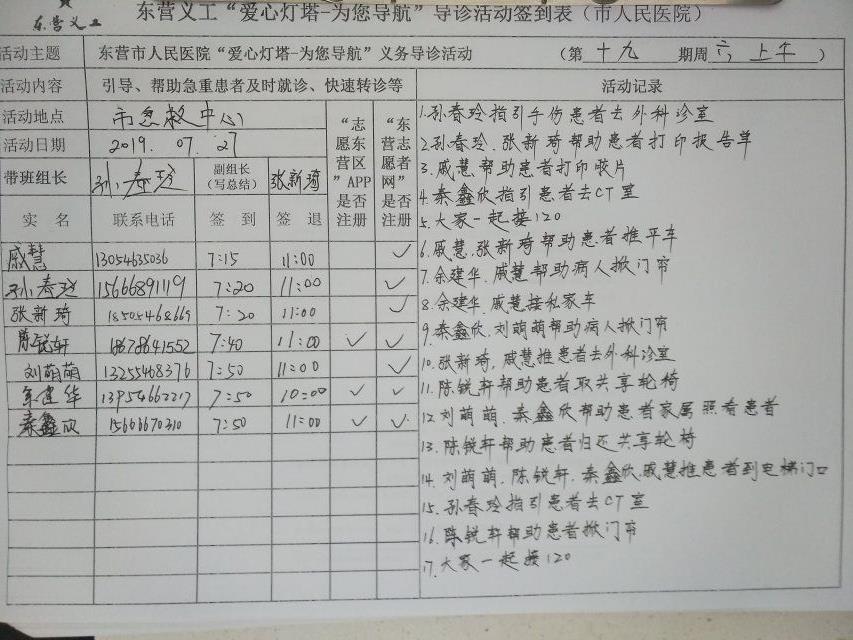 东营义工 东营义工“爱心灯塔-为您导航”导诊活动签到表（市人民医院）
活动主题 东营市人民医院“爱心灯塔-为您导航”义务导诊活动 （第 十九 期周 六 上午 ）
活动内容 引导、帮助急重患者及时就诊、快速转诊等 活动记录
活动地点 市急救中心
活动日期 2019. 07. 27
带班组长 孙春玲 副组长（写总结） 张新琦
“志愿东营区”APP是否注册
“东营志愿者网”是否注册
实 名 联系电话 签 到 签 退
戚慧 13054635036 7:15 11:00 ✓
孙春玲 15666891119 7:20 11:00 ✓
张新琦 18505468669 7:20 11:00 ✓
陈锐轩 18678641552 7:40 11:00 ✓ ✓
刘萌萌 13255468376 7:50 11:00 ✓
余建华 13954662217 7:50 10:00 ✓ ✓
秦鑫欣 15666670310 7:50 11:00 ✓ ✓
1.孙春玲指引手伤患者去外科诊室
2.孙春玲.张新琦帮助患者打印报告单
3.戚慧帮助患者打印胶片
4.秦鑫欣指引患者去CT室
5.大家一起接120
6.戚慧.张新琦帮助患者推平车
7.余建华.戚慧帮助病人掀门帘
8.余建华.戚慧接私家车
9.秦鑫欣.刘萌萌帮助病人掀门帘
10.张新琦.戚慧推患者去外科诊室
11.陈锐轩帮助患者取共享轮椅
12.刘萌萌.秦鑫欣帮助患者家属照看患者
13.陈锐轩帮助患者归还共享轮椅
14.刘萌萌.陈锐轩.秦鑫欣.戚慧推患者到电梯门口
15.孙春玲指引患者去CT室
16.陈锐轩帮助患者掀门帘
17.大家一起接120